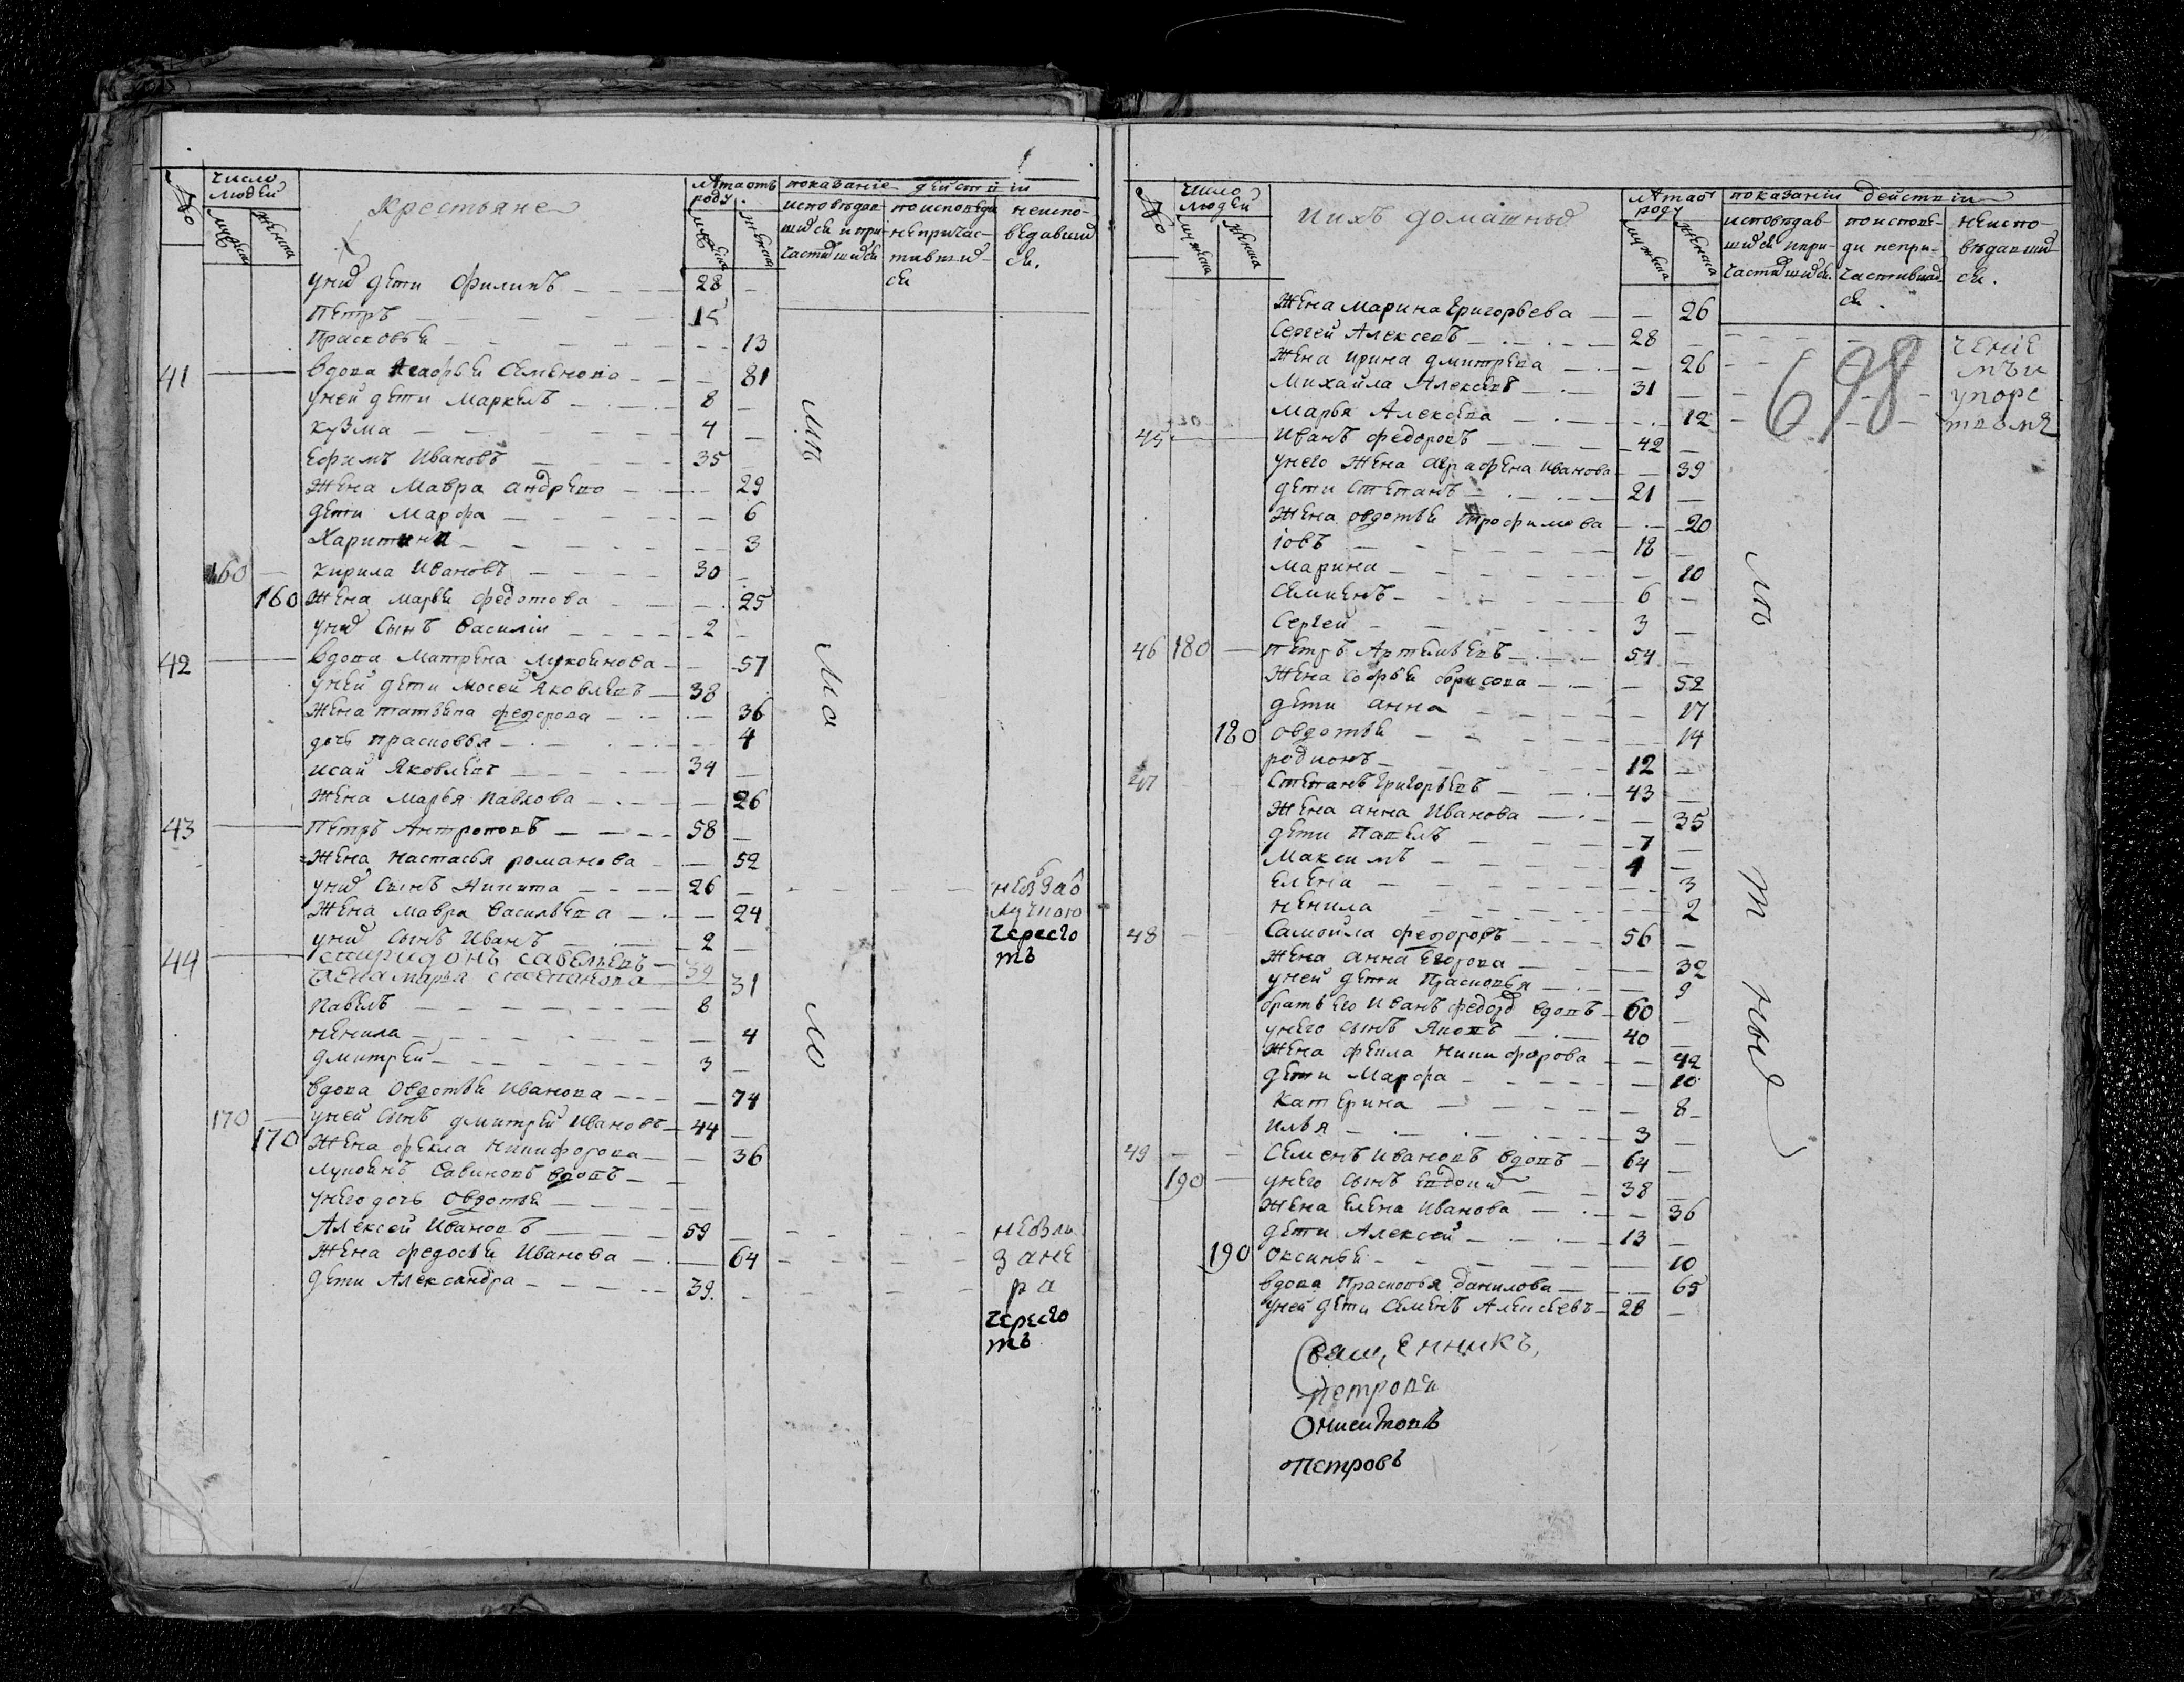 число людей
Крестьяне
лѣта отъ роду
показанiе действiи
мужеска
женска
мужеска
женска
исповѣдавшияся и причастившияся
по исповеди не причастившияся
не исповедавшияся.
у них дети Филипъ 28
Петръ 15
Прасковьи 13
41 вдова Семенова 81
у ней дети Маркелъ 8
Кузма 4
Ефимъ Ивановъ 35
Жена Мавра Андрева 29
дети Марфа 6
Харитина 3
160 Кирила Ивановъ 30
160 Жена Марьи Федотова 25
у них сынъ Василiи 2
42 вдова Матрена Лукоянова 57
у ней дети Мосей Яковлевъ 38
Жена Татьяна Федорова 36
дочь Прасковья 4
Исаи Яковлевъ 34
Жена Марья Павлова 26
43 Петръ Антроповъ 58
Жена Настасья Романова 52
у них сынъ Никита 26
Жена Мавра Васильева 24
у них сынъ Иванъ 2
44 Спиридонъ Савельевъ 39
Жена Марья Степанова 31
Павелъ 8
Ненила 4
Дмитреи 3
вдова Овдотьи Иванова 74
170 у ней сынъ Дмитреи Ивановъ 44
170 Жена Фекла Никифорова 36
Лукоянъ Савиновъ вдовъ
у него дочь Овдотьи
Алексей Ивановъ 59
Жена Федосьи Иванова 64
дети Александра 39.
и ихъ домашныя
число людей
мужеска
женска
лѣта от роду
мужеска
женска
показанiи действiи
исповѣдавшияся и причастившияся.
по исповеди не причастившияся.
не исповѣдавшияся.
Жена Марина Григорьева 26
Сергей Алексевъ 28
Жена Ирина Дмитрева 26
Михайла Алексевъ 31
Марья Алексева 12
698
45 Иванъ Федоровъ 42
у него Жена Аграфена Иванова 39
дети Степанъ 21
Жена Овдотьи Трофимова 20
Iовъ 18
Марина 10
Семионъ 6
Сергеи 3
46 180 Петръ Артемьевъ 54
Жена Софьи Борисова 52
дети Анна 17
180 Овдотьи 14
Родионъ 12
47 Степанъ Григорьевъ 43
Жена Анна Иванова 35
дети Павелъ 7
Максимъ 4
Елена 3
Ненила 2
48 Самойла Федоровъ 56
Жена Анна Егорова 32
у ней дети Прасковья 9
братъ его Иванъ Федор вдовъ 60
у него сынъ Яковъ 40
Жена Фекла Никифорова 42
дети Марфа 10
Катерина 8
Илья 3
49 Семенъ Ивановъ вдовъ 64
190 у него сынъ Евдоки 38
Жена Елена Иванова 36
дети Алексей 13
190 Оксиньи 10
вдова Прасковья Данилова 65
у ней дети Семенъ Алексеевъ 28
Священникъ,
Петровъ
Петровъ